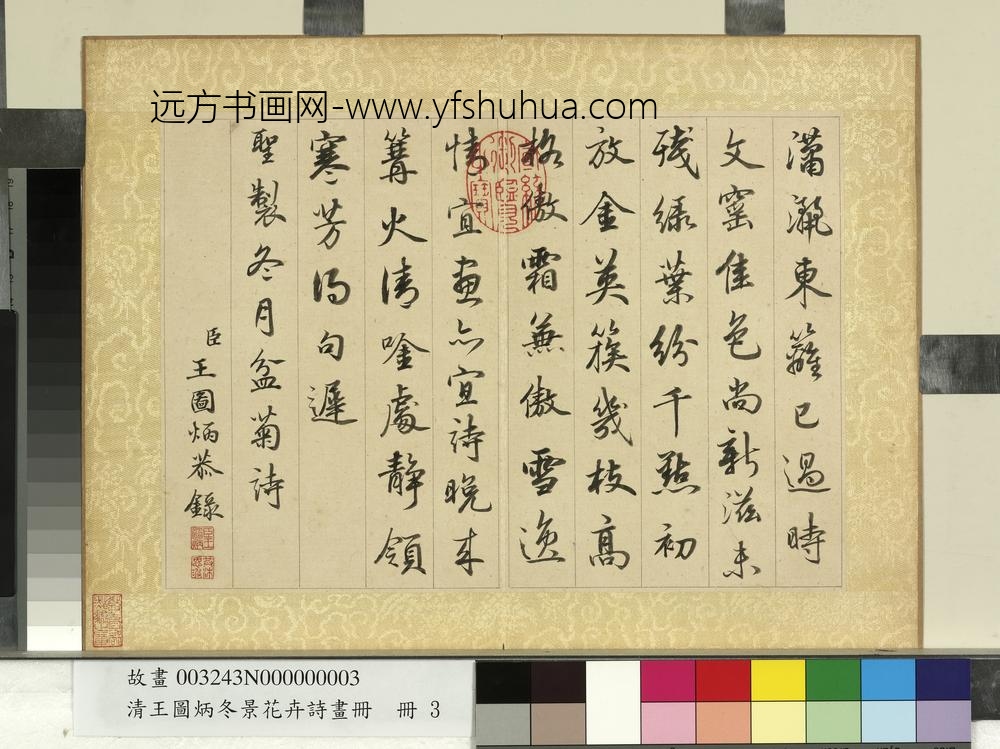 远方书画网-www.yfshuhua.com
瀟灑東籬已過時
文窯佳色尚新滋未
殘綠葉紛千點初
放金英簇幾枝高
格傲霜兼傲雪逸
情宜畫亦宜詩晚來
篝火清唫處靜領
寒芳得句遲
聖製冬月盆菊詩
臣王圖炳恭錄
故畫 003243N000000003
清王圖炳冬景花卉詩畫冊 冊 3